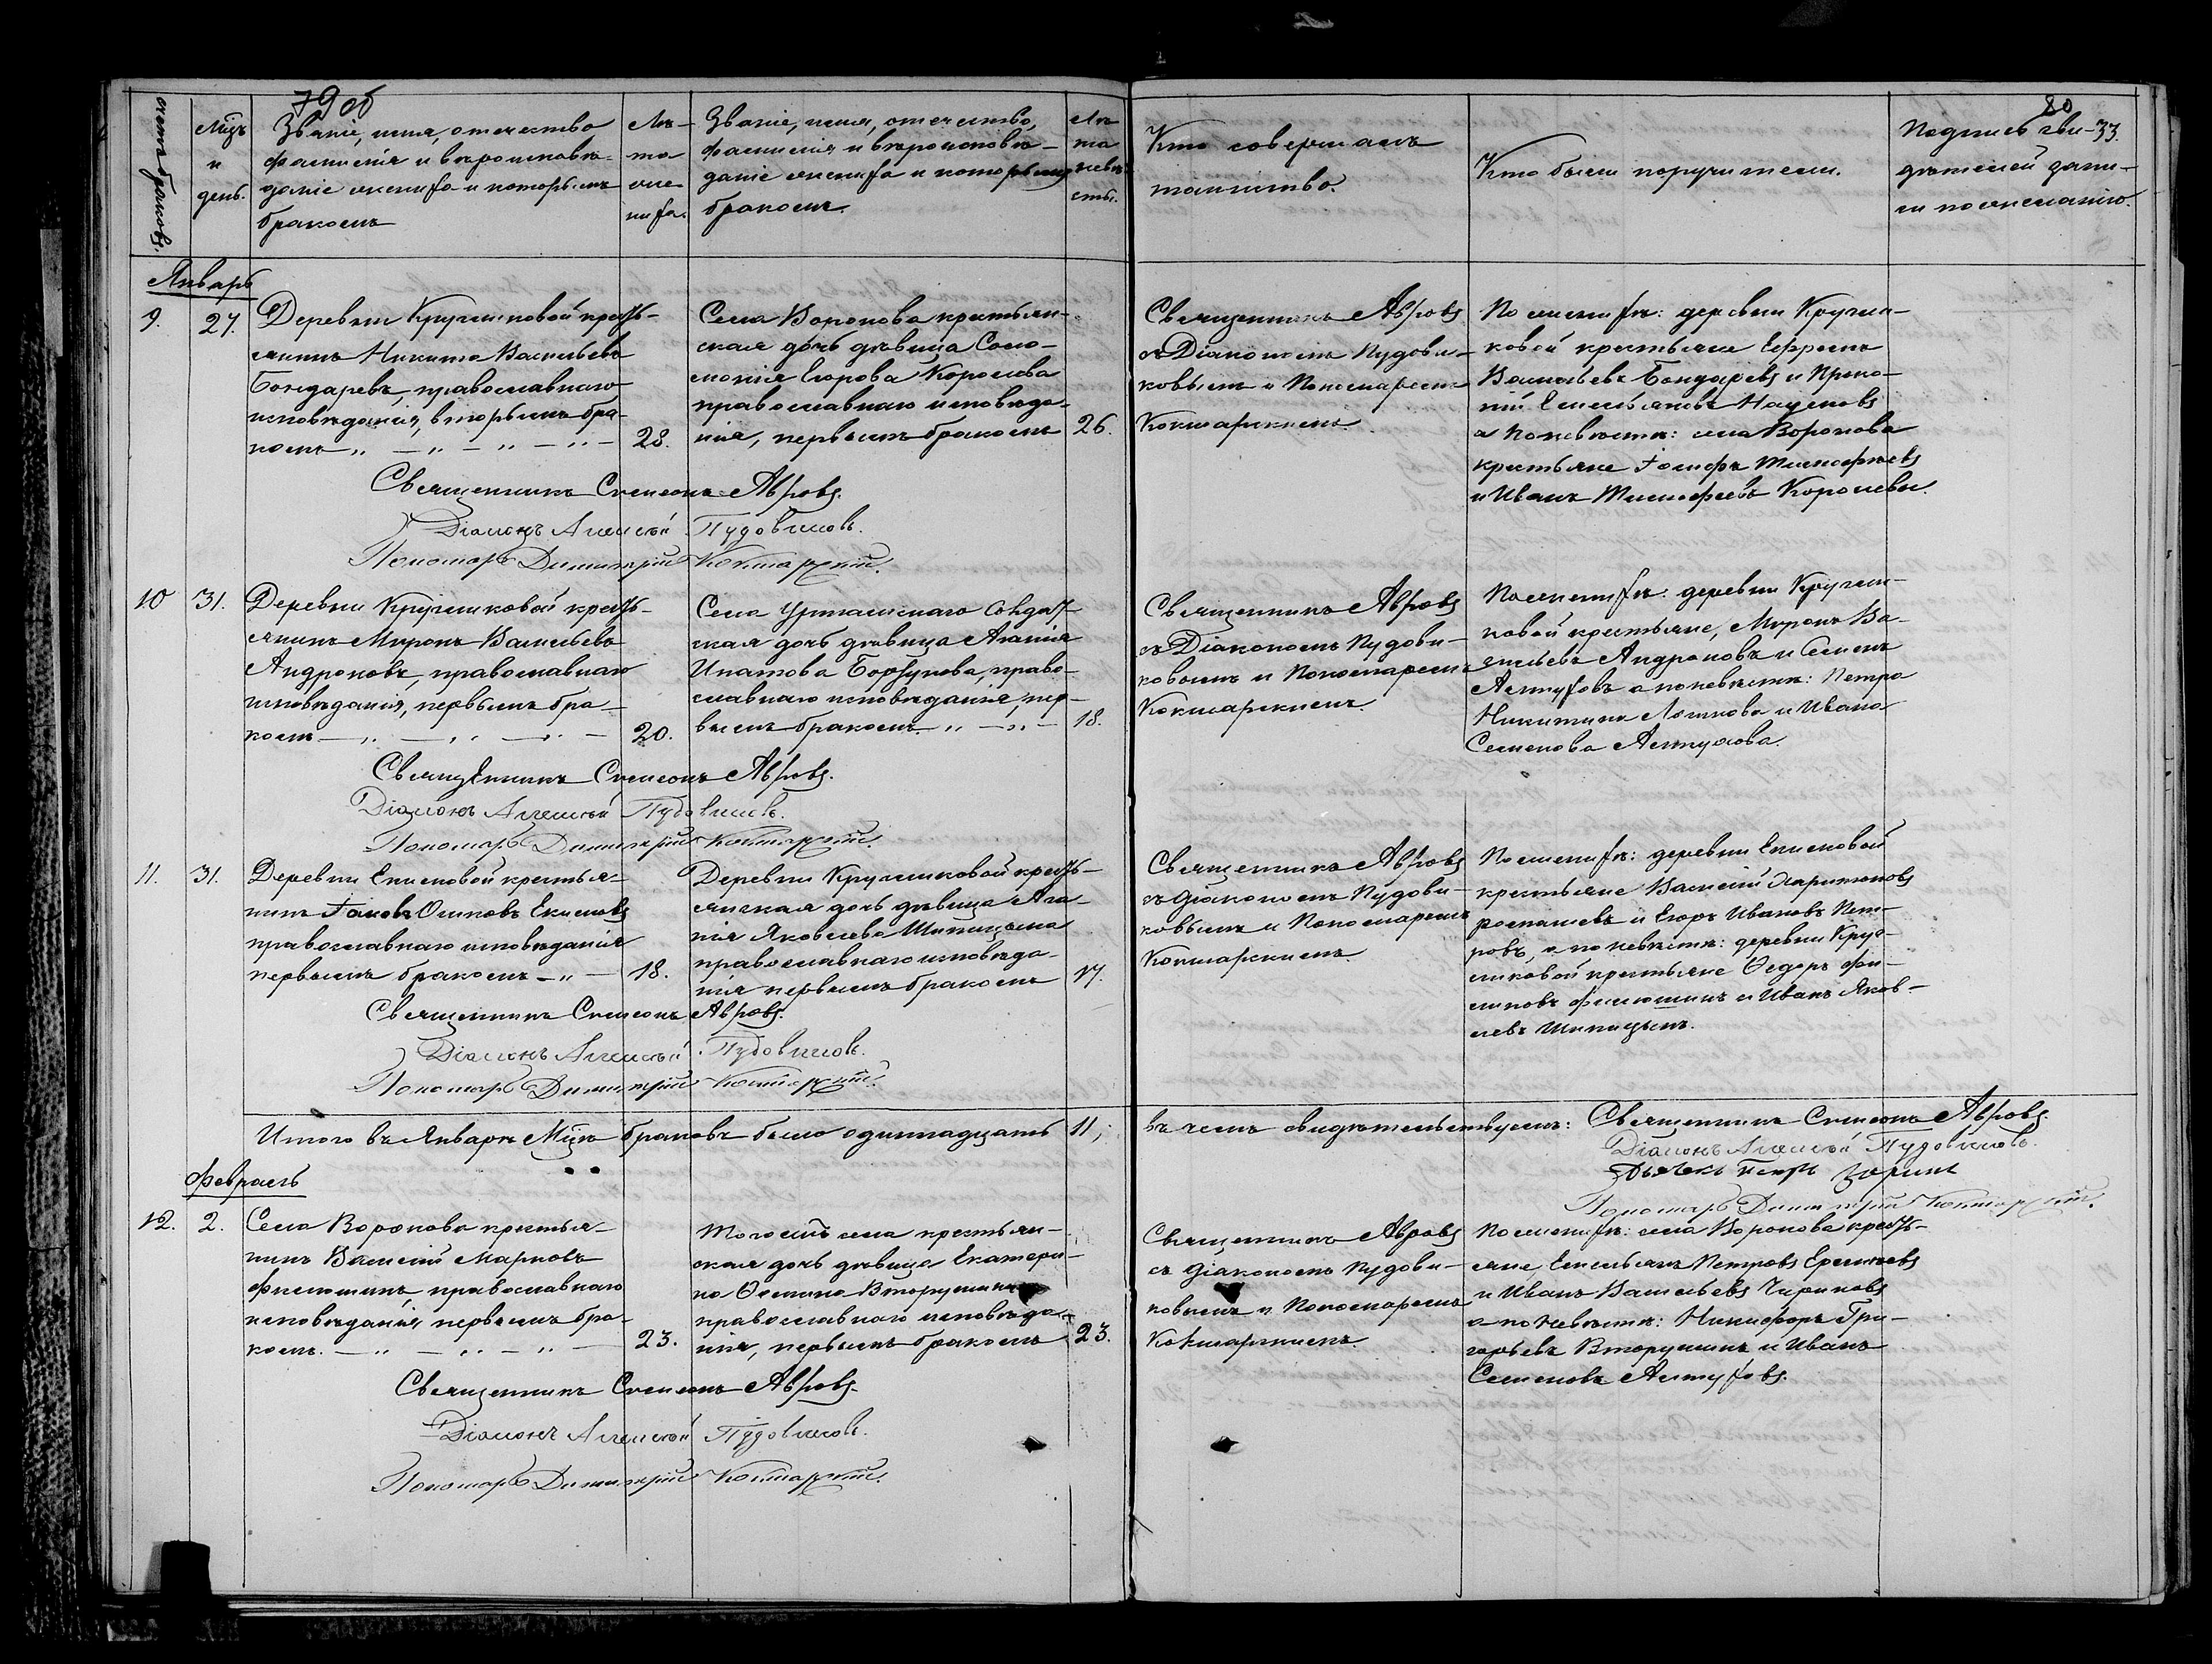 79 об
80
33.
счетъ браковъ.
Мѣц
и
день.
Званіе, имя, отчество
фамилія и вѣроисповѣ-
даніе жениха и которымъ
бракомъ
Лѣ-
та
же-
ниха.
Званіе, имя, отчество,
фамилія и вѣроисповѣ-
даніе жениха и которымъ
бракомъ.
Лѣ
та
невѣ
сты.
Кто совершалъ
таинство.
Кто были поручители.
Подпись сви-
дѣтелей запи-
си по желанію.
Январь
9.
27.
Деревни Кругликовой крест-
янинъ Никита Васильевъ
Бондаревъ, православнаго
исповѣданія, вторымъ бра-
комъ
28.
Села Воронова крестьян-
ская дочь дѣвица Соло-
монія Егорова Королева
православнаго исповѣда-
нія, первымъ бракомъ
26.
Священникъ Авровъ
съ Діакономъ Пудови-
ковымъ и Пономаремъ
Кокшарскимъ
По женихѣ: деревни Кругли-
ковой крестьяне Ефремъ
Васильевъ Бондаревъ и Проко-
пій Емельяновъ Науменовъ
а по невѣстѣ: села Воронова
крестьяне Іосифъ Тимофѣевъ
и Иванъ Тимофеевъ Королевы.
Священникъ Симеонъ Авровъ.
Діаконъ Алексѣй Пудовиковъ.
Пономарь Димитрій Кокшарскій.
10
31.
Деревни Кругликовой крест-
янинъ Миронъ Васильевъ
Андроновъ, православнаго
исповѣданія, первымъ бра-
комъ
20.
Села Уртамскаго Солдат-
ская дочь дѣвица Агапія
Ипатова, право-
славнаго исповѣданія, пер-
вымъ бракомъ
18.
Священникъ Авровъ
съ Діакономъ Пудови-
ковымъ и Пономаремъ
Кокшарскимъ.
По женихѣ: деревни Кругли-
ковой крестьяне, Миронъ Ва-
сильевъ Андроновъ и Семенъ
Алтуховъ а по невѣстѣ: Петра
Никитина Логинова и Ивана
Семенова Алтухова.
Священникъ Симеонъ Авровъ.
Діаконъ Алексѣй Пудовиковъ.
Пономарь Димитрій Кокшарскій.
11.
31.
Деревни Екимовой крестья-
нинъ Іаковъ Осиповъ Екимовъ
православнаго исповѣданія
первымъ бракомъ
18.
Деревни Кругликовой крест-
янская дочь дѣвица Ага-
пія Яковлева Шипицына
православнаго исповѣда-
нія первымъ бракомъ
17.
Священникъ Авровъ
съ Діакономъ Пудови-
ковымъ и Пономаремъ
Кокшарскимъ.
По женихѣ: деревни Екимовой
крестьяне Василій Харитоновъ
и Егоръ Ивановъ Пет-
ровъ, а по невѣстѣ: деревни Круг-
ликовой крестьяне Ѳедоръ Фи-
липовъ Филюшинъ и Иванъ Яков-
левъ Шипицынъ.
Священникъ Симеонъ Авровъ.
Діаконъ Алексѣй Пудовиковъ.
Пономарь Димитрій Кокшарскій.
Итого въ Январѣ Мѣцѣ браковъ было одиннадцать 11,
въ чемъ свидѣтельствуемъ: Священникъ Симеонъ Авровъ.
Діаконъ Алексѣй Пудовиковъ.
Дьячекъ Петръ Зоринъ
Пономарь Димитрій Кокшарскій.
Февраль
12.
2.
Села Воронова крестья-
нинъ Василій Марковъ
Филюшинъ, православнаго
исповѣданія первымъ бра-
комъ.
23.
Тогожъ села крестьян-
ская дочь дѣвица Екатери-
на Вторушина
православнаго исповѣда-
нія, первымъ бракомъ
23.
Священникъ Авровъ
съ Діакономъ Пудови-
ковымъ и Пономаремъ
Кокшарскимъ.
По женихѣ: села Воронова крест-
яне Емельянъ Петровъ Еремѣевъ
и Иванъ Васильевъ Чириковъ
а по невѣстѣ: Никифоръ Гри-
горьевъ Вторушинъ и Иванъ
Семеновъ Алтуховъ.
Священникъ Симеонъ Авровъ.
Діаконъ Алексѣй Пудовиковъ.
Пономарь Димитрій Кокшарскій.